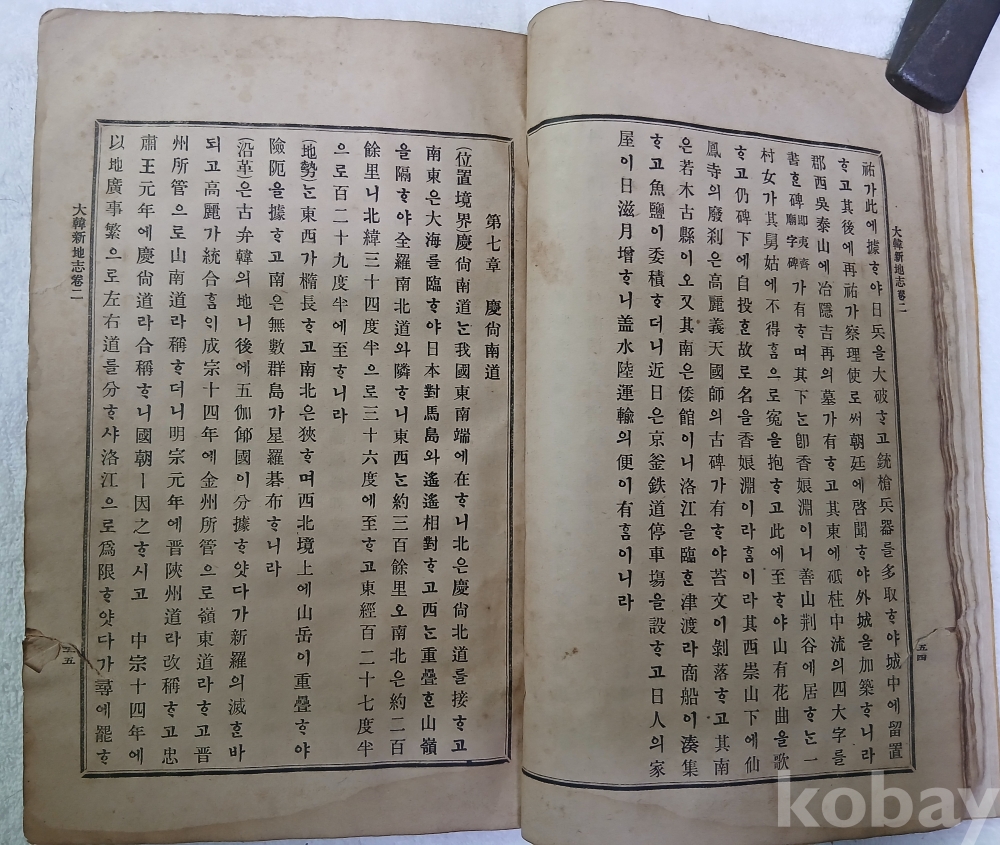 大韓新地志卷二
祐가此에據ᄒᆞ야日兵을大破ᄒᆞ고銃槍兵器를多取ᄒᆞ야城中에留置
ᄒᆞ고其後에再祐가察理使로써朝廷에啓聞ᄒᆞ야外城을加築ᄒᆞ니라
郡西吳泰山에冶隱吉再의墓가有ᄒᆞ고其東에砥柱中流의四大字를
書ᄒᆞᆫ碑即夷齊廟字碑가有ᄒᆞ며其下ᄂᆞᆫ卽香娘淵이니善山荆谷에居ᄒᆞᄂᆞᆫ一
村女가其舅姑에不得ᄒᆞᆷ으로寃을抱ᄒᆞ고此에至ᄒᆞ야山有花曲을歌
ᄒᆞ고仍碑下에自投ᄒᆞᆫ故로名을香娘淵이라ᄒᆞᆷ이라其西崇山下에仙
鳳寺의廢刹은高麗義天國師의古碑가有ᄒᆞ야苔文이剝落ᄒᆞ고其南
은若木古縣이오又其南은倭館이니洛江을臨ᄒᆞᆫ津渡라商船이湊集
ᄒᆞ고魚鹽이委積ᄒᆞ더니近日은京釜鉄道停車塲을設ᄒᆞ고日人의家
屋이日滋月增ᄒᆞ니盖水陸運輸의便이有ᄒᆞᆷ이니라
五四
第七章 慶尙南道
(位置境界)慶尙南道ᄂᆞᆫ我國東南端에在ᄒᆞ니北은慶尙北道를接ᄒᆞ고
南東은大海를臨ᄒᆞ야日本對馬島와遙遙相對ᄒᆞ고西ᄂᆞᆫ重疊ᄒᆞᆫ山嶺
을隔ᄒᆞ야全羅南北道와隣ᄒᆞ니東西ᄂᆞᆫ約三百餘里오南北은約二百
餘里니北緯三十四度半으로三十六度에至ᄒᆞ고東經百二十七度半
으로百二十九度半에至ᄒᆞ니라
(地勢)ᄂᆞᆫ東西가楕長ᄒᆞ고南北은狹ᄒᆞ며西北境上에山岳이重疊ᄒᆞ야
險阨을據ᄒᆞ고南은無數群島가星羅碁布ᄒᆞ니라
(沿革)은古弁韓의地니後에五伽倻國이分據ᄒᆞ얏다가新羅의滅ᄒᆞᆫ바
되고高麗가統合ᄒᆞᆷᄋᆡ成宗十四年에金州所管으로嶺東道라ᄒᆞ고晋
州所管으로山南道라稱ᄒᆞ더니明宗元年에晋陜州道라改稱ᄒᆞ고忠
肅王元年에慶尙道라合稱ᄒᆞ니國朝ㅣ因之ᄒᆞ시고 中宗十四年에
以地廣事繁으로左右道를分ᄒᆞ샤洛江으로爲限ᄒᆞ얏다가尋에罷ᄒᆞ
大韓新地志卷二
五五
kobay